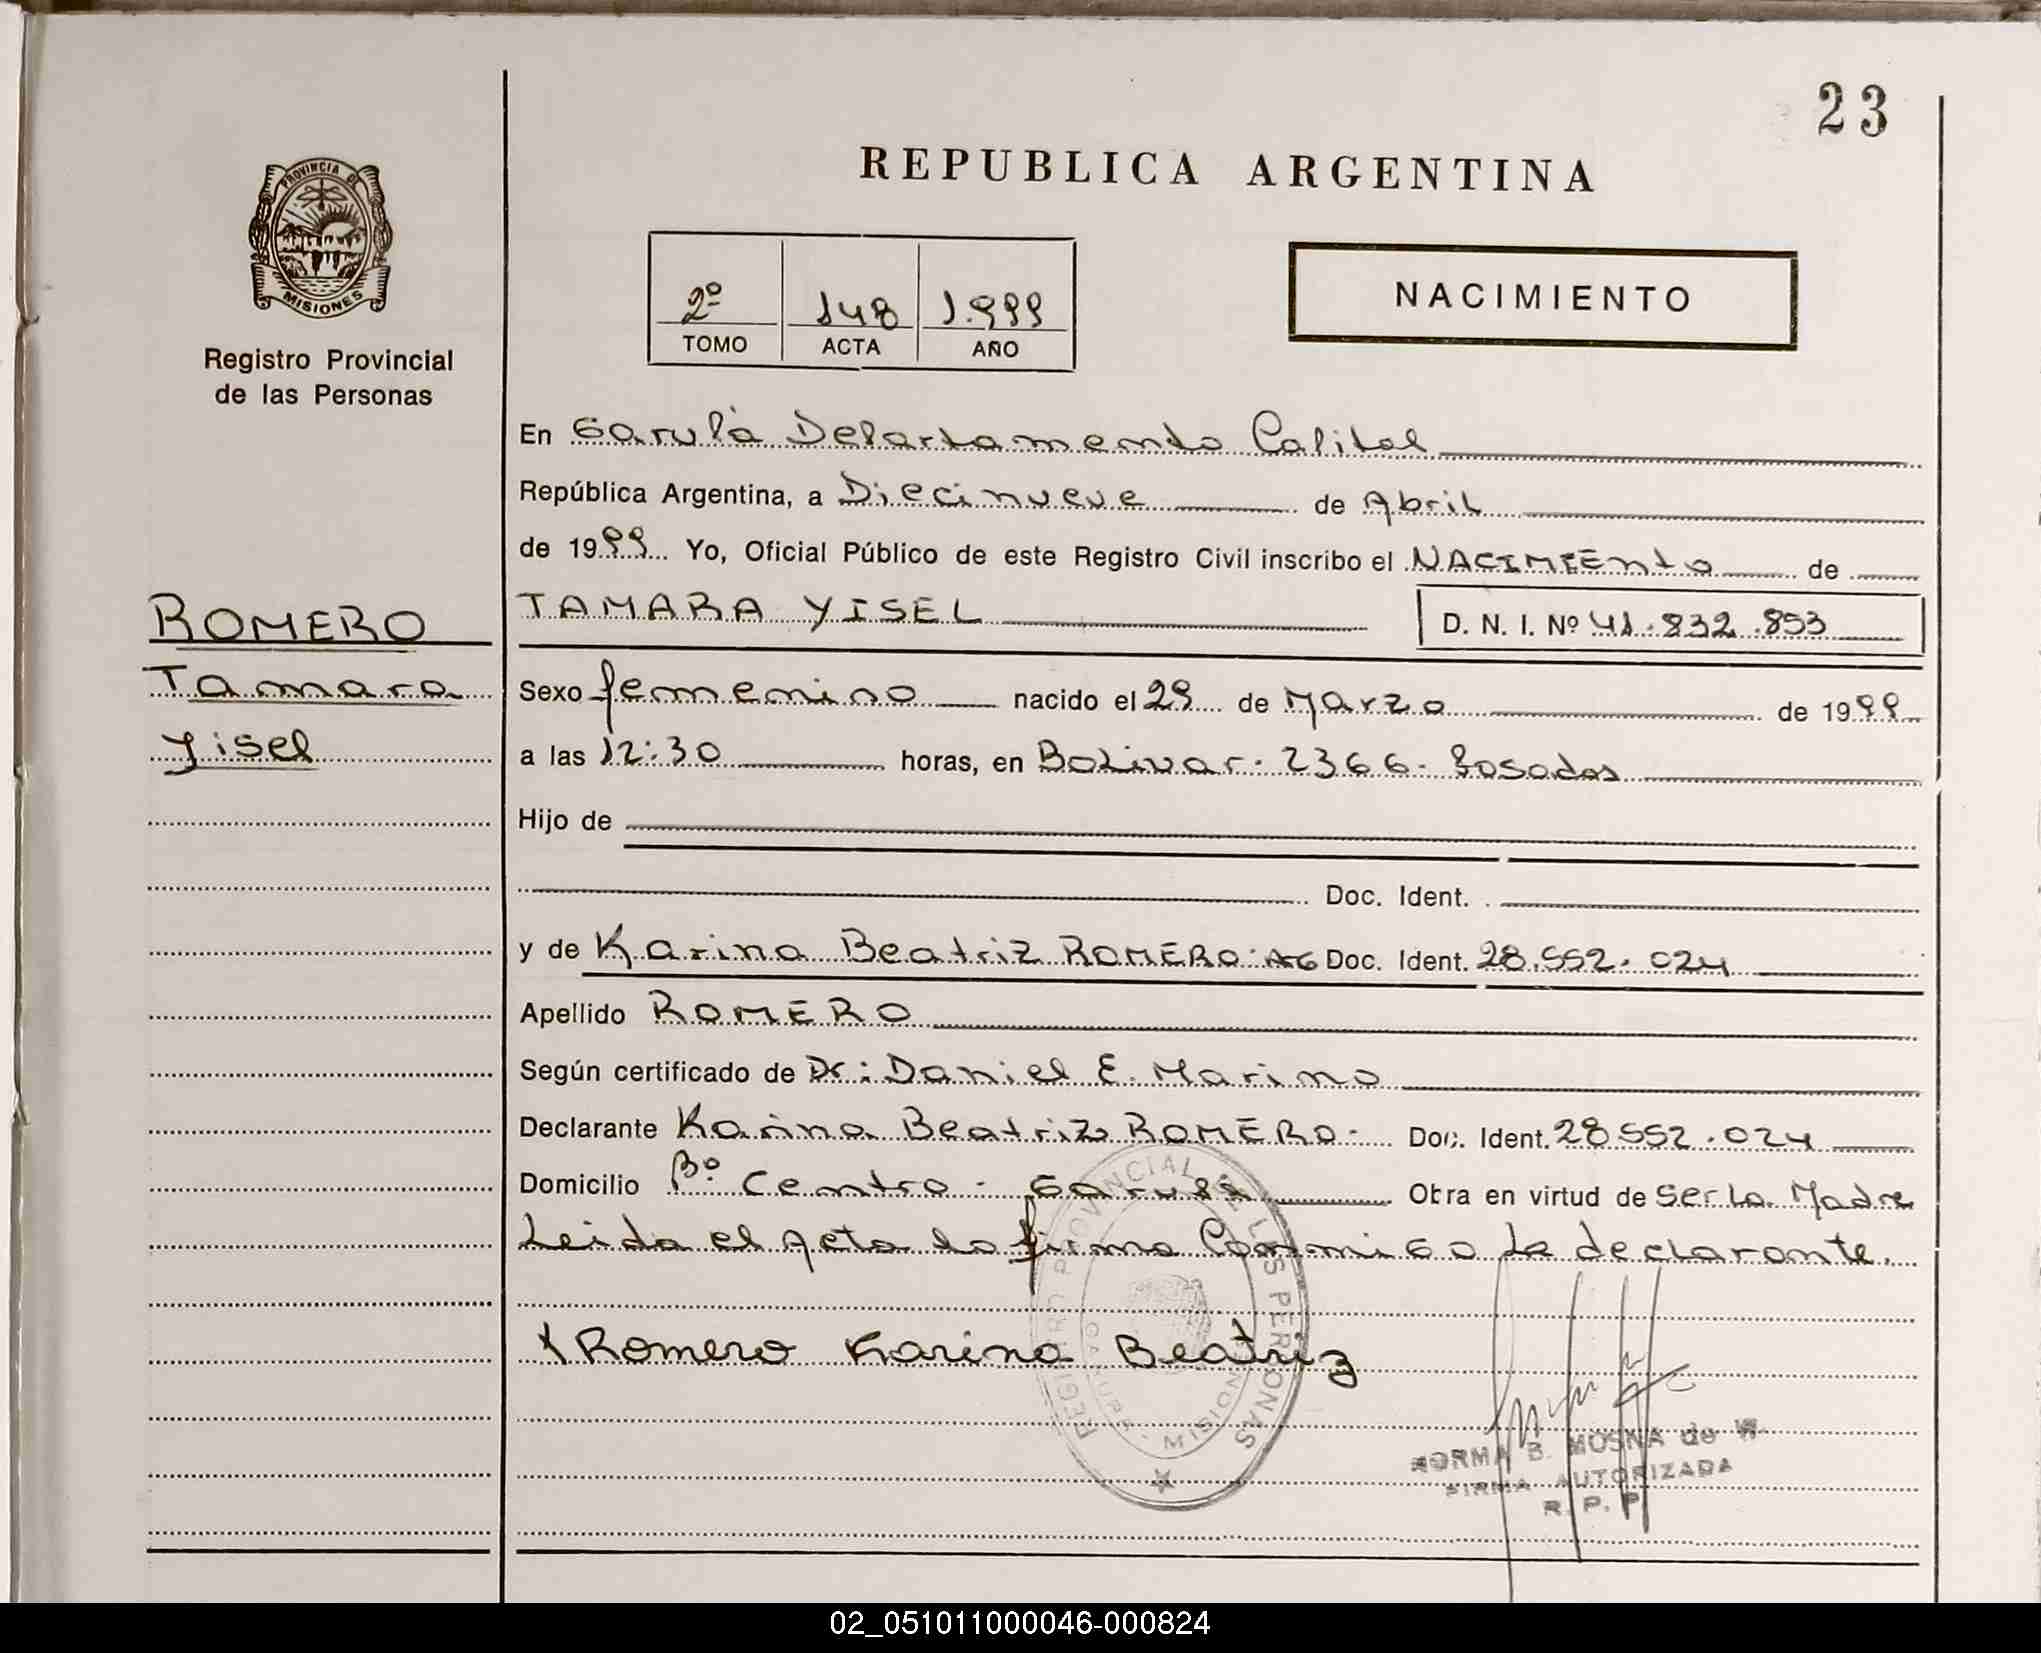 23
REPUBLICA ARGENTINA
PROVINCIA DE
MISIONES
Registro Provincial
de las Personas
2º 148 1.999
TOMO ACTA AÑO
NACIMIENTO
En Garupá Departamento Capital
República Argentina, a Diecinueve de Abril
de 1999 Yo, Oficial Público de este Registro Civil inscribo el NACIMIENTO de
ROMERO
Tamara
Yisel
TAMARA YISEL D. N. I. Nº 41.832.853
Sexo femenino nacido el 29 de Marzo de 1999
a las 12:30 horas, en Bolivar. 2366. Posadas
Hijo de
Doc. Ident.
y de Karina Beatriz ROMERO. ARG Doc. Ident. 28.552.024
Apellido ROMERO
Según certificado de Dr: Daniel E. Marino
Declarante Karina Beatriz ROMERO. Doc. Ident. 28.552.024
Domicilio Bº Centro. Garupá Obra en virtud de Ser La Madre
Leida el Acta la firma Conmigo La declarante.
X Romero Karina Beatriz
REGISTRO PROVINCIAL DE LAS PERSONAS
MISIONES
NORMA B. MOSNA de W.
FIRMA AUTORIZADA
R. P. P.
02_051011000046-000824